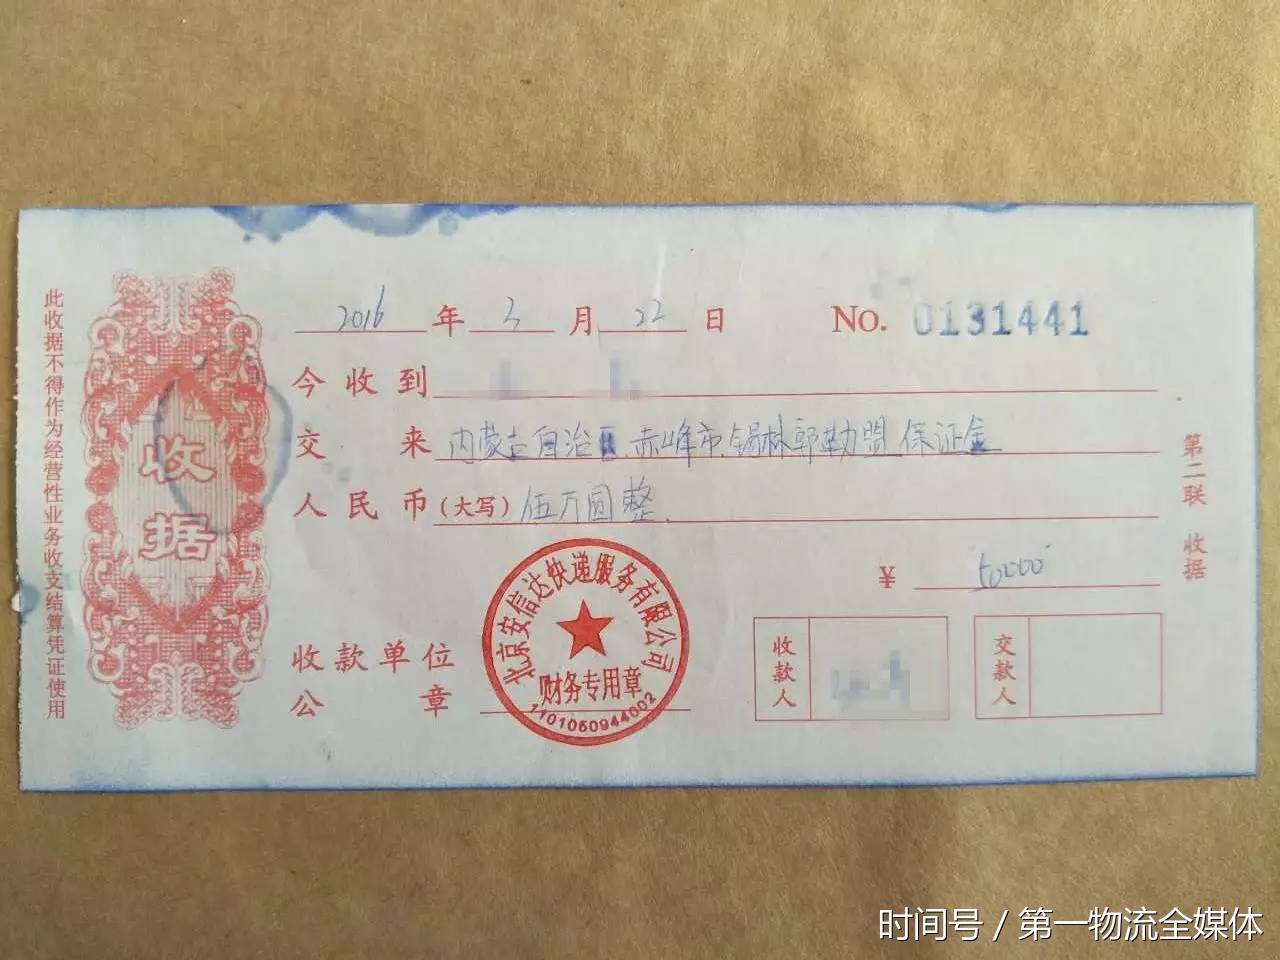 此收据不得作为经营性业务收支结算凭证使用
收据
2016年3月22日 No. 0131441
今收到
交来 内蒙古自治区.赤峰市.锡林郭勒盟保证金
人民币(大写) 伍万圆整.
¥ 50000
收款单位
公章
北京安信达快递服务有限公司
财务专用章
1101050944002
收款人
交款人
第二联 收据
时间号 / 第一物流全媒体